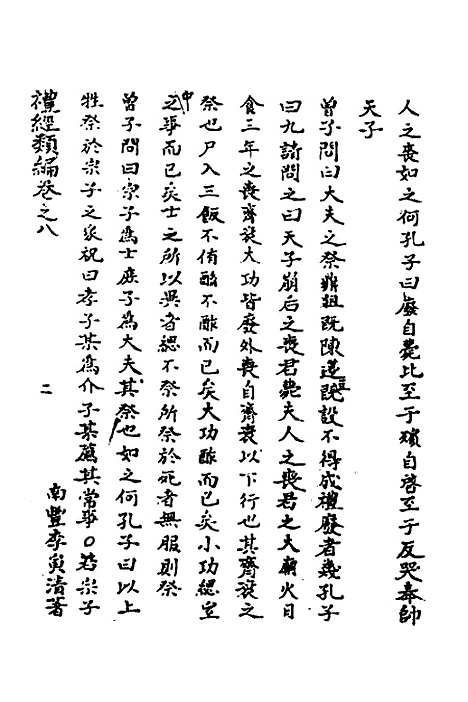 人之喪如之何孔子曰廢自薨比至于殯自啓至于反哭奉帥
天子
曾子問曰大夫之祭鼎俎既陳籩豆既設不得成禮廢者幾孔子
曰九請問之曰天子崩后之喪君薨夫人之喪君之大廟火日
食三年之喪齊衰大功皆廢外喪自齊衰以下行也其齊衰之
祭也尸入三飯不侑酳不酢而已矣大功酢而已矣小功緦室
中之事而已矣士之所以異者緦不祭所祭於死者無服則祭
曾子問曰宗子爲士庶子爲大夫其祭也如之何孔子曰以上
牲祭於宗子之家祝曰孝子某爲介子某薦其常事○若宗子
禮經類編卷之八
二
南豐李寅清著